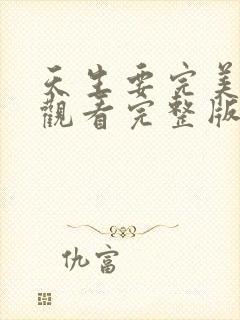 天生要完美
觀看完整版
仇富